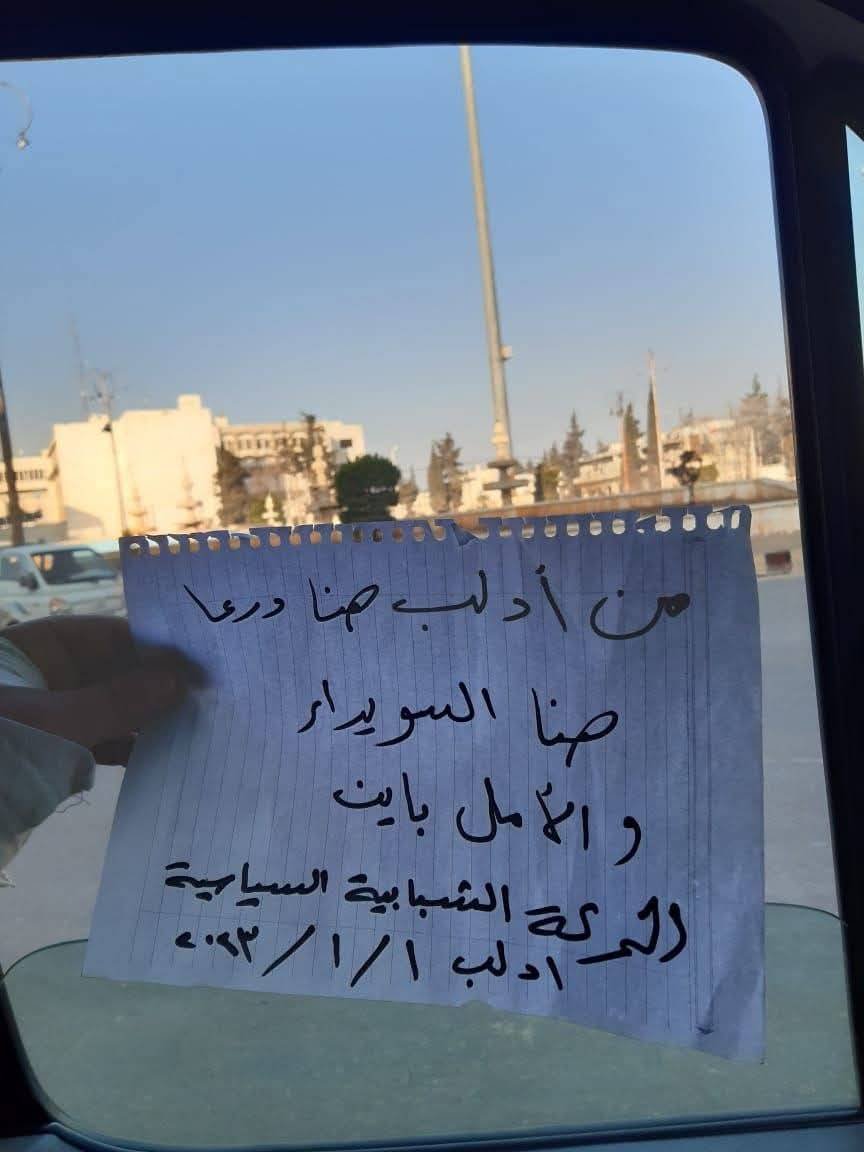 من أدلب هنا درعا
هنا السويداء
و الأمل باين
الحركة الشبابية السياسية
ادلب ١/١/٢٠٢٣